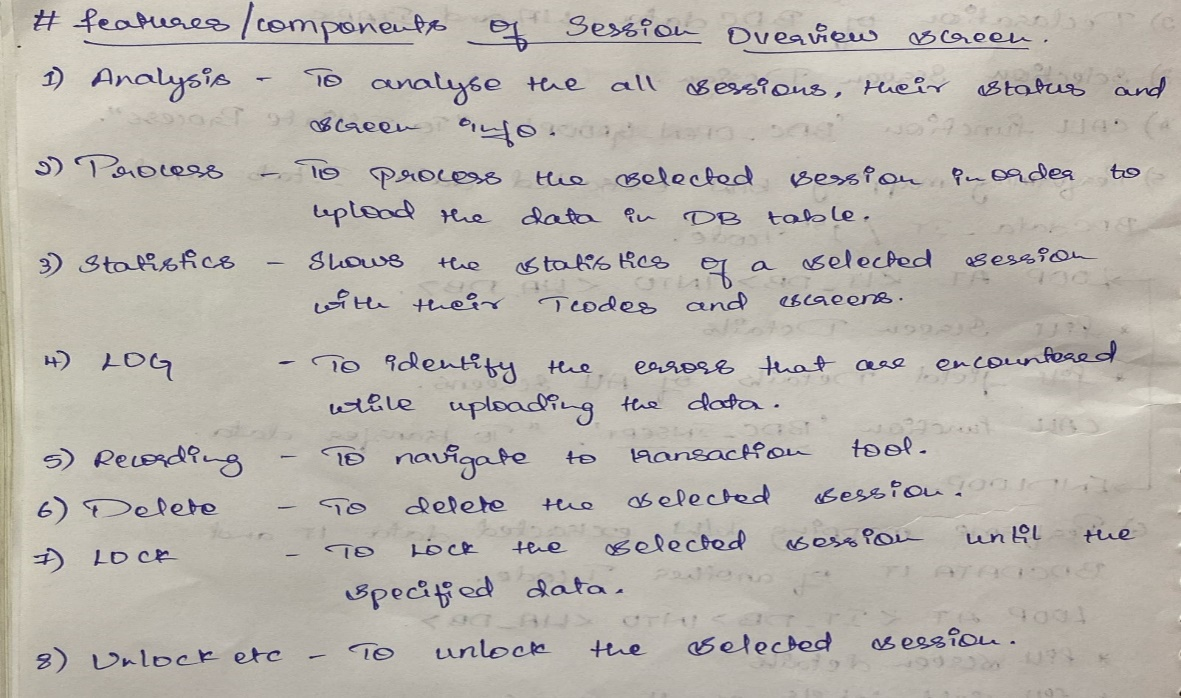 # features/components of Session Overview screen.
1) Analysis - To analyse the all sessions, their status and
screen info.
2) Process - To process the selected session in order to
upload the data in DB table.
3) Statistics - Shows the statistics of a selected session
with their Tcodes and screens.
4) LOG - To identify the errors that are encountered
while uploading the data.
5) Recording - To navigate to transaction tool.
6) Delete - To delete the selected session.
7) LOCK - To Lock the selected session until the
specified data.
8) Unlock etc - To unlock the selected session.